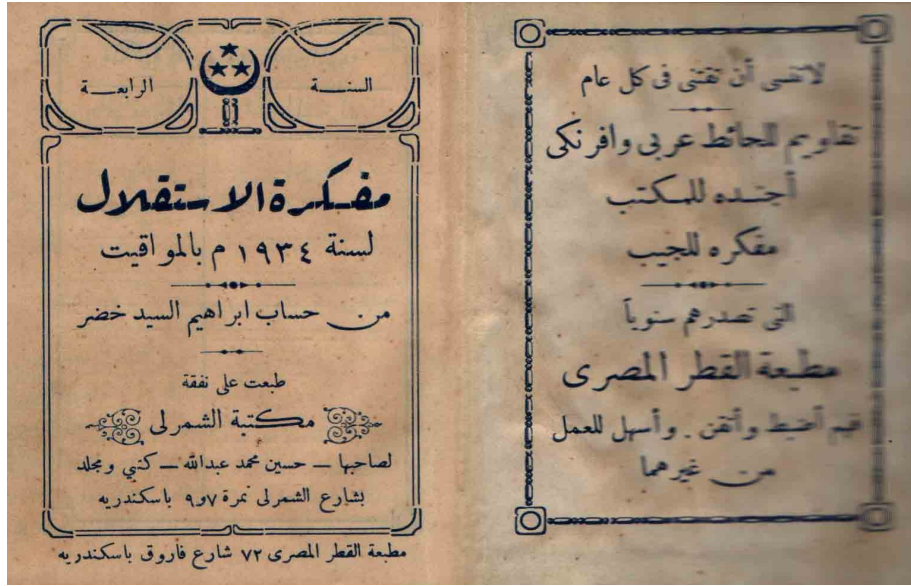 لاتنسى أن تقتنى فى كل عام
تقاويم للحائط عربى وافرنكى
أجنده للمكتب
مفكره للجيب
التى تصدرهم سنوياً
مطبعة القطر المصرى
فهم أضبط وأتقن . وأسهل للعمل
من غيرهما
السنــة
الرابعــة
مفكرة الاستقلال
لسنة ١٩٣٤ م بالمواقيت
من حساب ابراهيم السيد خضر
طبعت على نفقة
مكتبة الشمرلى
لصاحبها – حسين محمد عبدالله – كتبي ومجلد
بشارع الشمرلى نمرة ٧و٩ باسكندريه
مطبعة القطر المصرى ٧٢ شارع فاروق باسكندريه